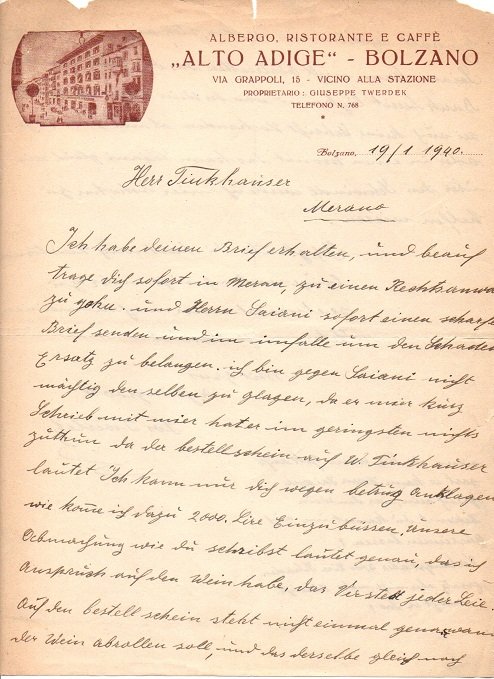 ALBERGO, RISTORANTE E CAFFÈ
„ALTO ADIGE“ - BOLZANO
VIA GRAPPOLI, 15 - VICINO ALLA STAZIONE
PROPRIETARIO: GIUSEPPE TWERDEK
TELEFONO N. 768
Bolzano, 19/1 1940.
Herr Tinkhauser
Merano
Ich habe deinen Brief erhalten, und beauf
trage dich sofort in Meran, zu einen Rechtsanwa
zu gehn. und Herrn Saiani sofort einen scharfe
Brief senden und im imfalle um den Schaden
Ersatz zu belangen. ich bin gegen Saiani nicht
mächtig den selben zu glagen, da er mier kürz
Schrieb mit mier hat er im geringsten nichts
zuthun da der bestellschein auf W. Tinkhauser
lautet Ich kann nur dich wegen betrug anklagen
wie kome ich dazu 2000. Lire Einzubüssen, unsere
Abmachung wie du schreibst lautet genau, das ich
Anspruch auf den Wein habe, das Versteht jeder Leie.
Auf den bestellschein steht nicht einmal genau wann
der Wein abrollen soll, und das derselbe gleich nach